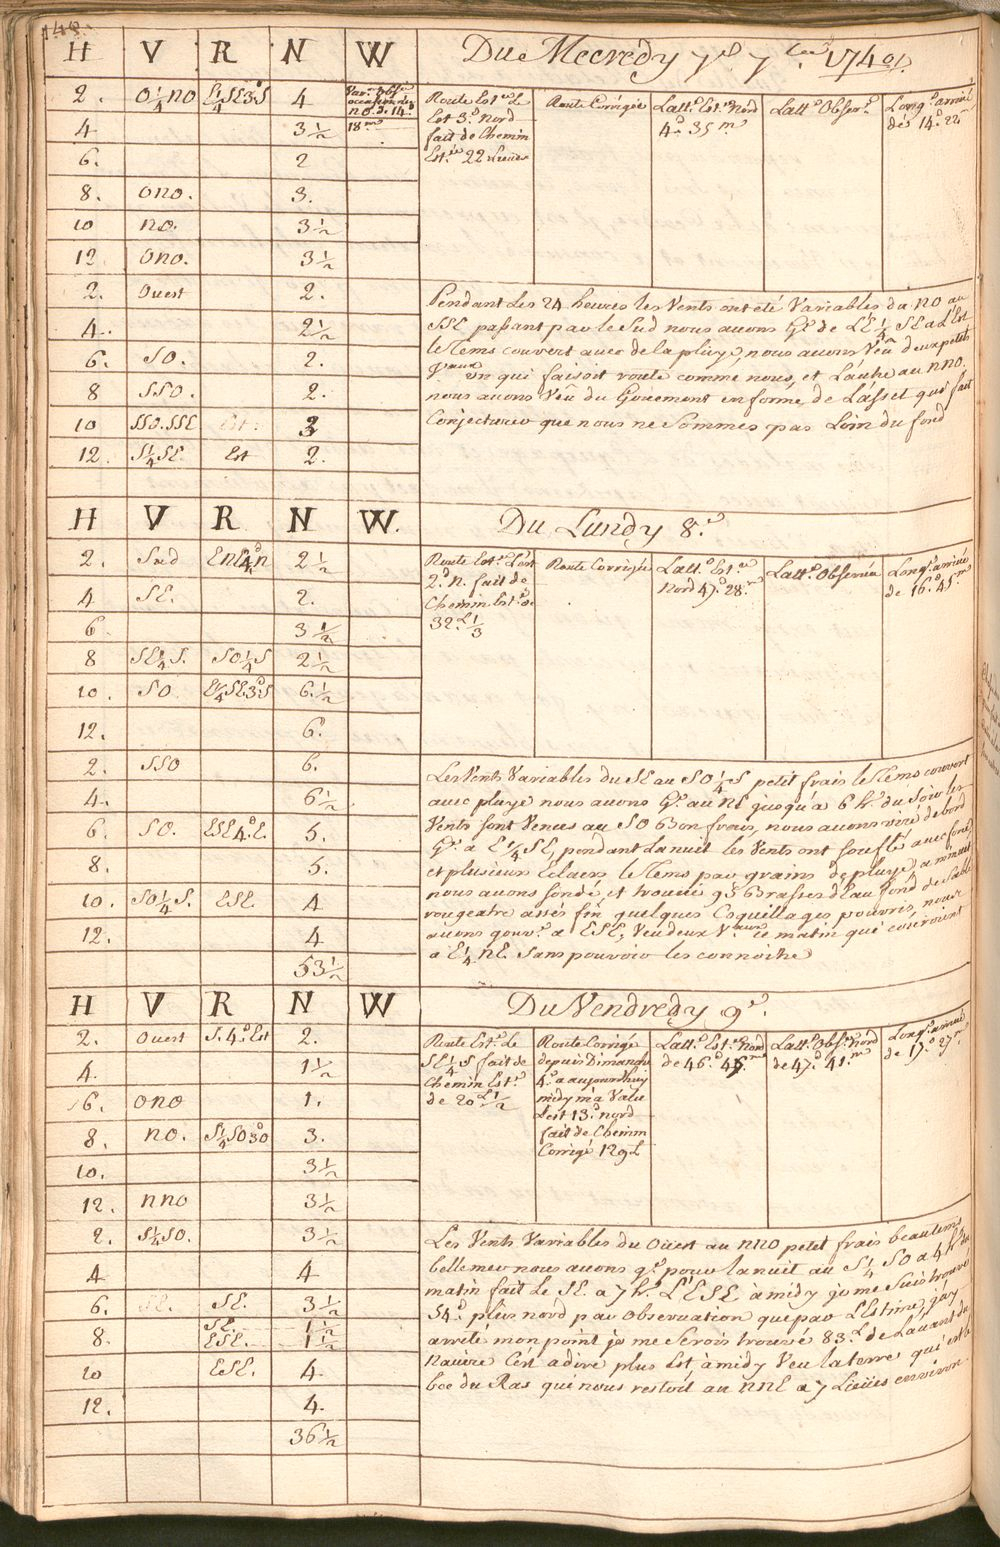 148.
H V R N W Du Mecredy 7.e 7.bre 1740/1.
2. O¼NO E¼SE3.dS 4 Var.n obs.e occasion de NO. d. 14.
4 3½ 18.m
6. 2
8. ONO. 3.
10 NO. 3½
12 ONO. 3½
2. Ouest 2.
4. 2½
6. SO. 2.
8 SSO. 2.
10 SSO.SSE Est. 3
12. S¼SE. Est 2.
Route Est.ée Le
Est 3.d Nord
fait de Chemin
Est.ée 22 Lieues
Route Corrigée
Latt.e Est.ee Nord
4.d 35 m
Latt.e Observ.e
Long.e arrivée
dès 14.d 22.m
Pendant Les 24 heures les Vents ont été Variables du NO au
SSE passant par le Sud nous avons G.é de L'E¼SE a L'Est
le Tems couvert avec de la pluye, nous avons Veu deux petits
V.aux un qui faisoit route comme nous, et L'autre au NNO.
nous avons Veu du Gouemont en forme de Lasset qui fait
Conjecturer que nous ne Sommes pas Loin du fond
H V R N W. Du Lundy 8.e
2. Sud ENE4.dN 2½
4 SE. 2.
6 3½
8 SE¼S. SO¼S 2½
10. SO E¼SE3.dS 6.½
12. 6.
2. SSO 6.
4. 6½
6. SO. ESE4.dE. 5.
8. 5.
10. SO¼S. ESE 4
12. 4
53½
Route Est.e L'Est
2.d N. fait de
Chemin Est.é de
32.L ⅓
Route Corrigée
Latt.e Est.ee
Nord 47.d 28.m
Latt.e Observée
Long.e arrivée
de 16.d 45.m
Les Vents Variables du SE au SO¼S petit frais le Tems couvert
avec pluye nous avons G.é au NE jusqu'a 6 h.r du Soir les
Vents sont Venues au SO Bon frais, nous avons viré de bord
G.é a E¼SE, pendant la nuit les Vents ont souflé avec force
et plusieurs Eclairs le Tems par grains de pluye, a minuit
nous avons sondé, et trouvé 95 Brasses d'Eau fond de Sable
rougeatre assés fin quelques Coquillages pourris, nous
avons gouv.é a ESE, Veu deux V.aux ce matin qui couroient
a E¼NE. Sans pouvoir les connoitre
H V R N W Du Vendredy 9.e
2. Ouest S.4.dEst 2.
4. 1½
6. ONO 1.
8. NO. S¼SO3.dO 3.
10. 3½
12. NNO 3½
2. S¼SO. 3½
4 4
6. SE. SE. 3½
8. SE. ESE. 1½ 1½
10 ESE. 4.
12. 4.
36½
Route Est.e Le
SE¼S fait de
Chemin Est.é
de 20.L ½
Route Corrigée
depuis Dimanche
4.e a aujourdhuy
midy m'a Valu
L'est 13.d nord
fait de Chemin
Corrigé 129 L
Latt.e Est.ee Nord
de 46.d 47.m
Latt.e Obs.ee Nord
de 47.d 41.m
Long.e arrivée
de 17.d 27.m
Les Vents Variables du Ouest au NNO petit frais beau tems
belle mer nous avons g.é pour la nuit au S¼SO a 4 h.r du
matin fait Le SE. a 7 h.r L'ESE à midy je me suis trouvé
54.d plus nord par observation que par L'Estime, j'ay
arrêté mon point je me Serois trouvé 83.L de L'avant du
Navire C'est adire plus Est, à midy Veu la terre qui est le
bec du Ras qui nous restoit au NNE a 7 Lieües environ.